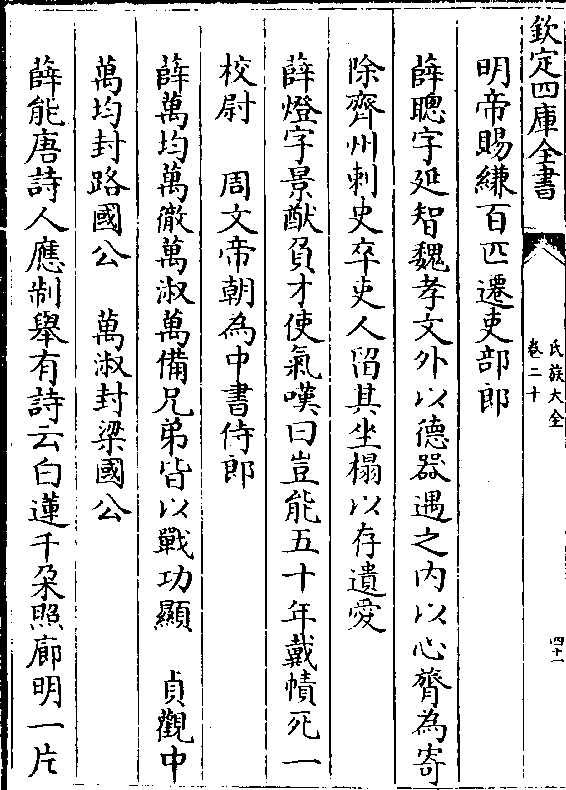 欽定四庫全書
氏族大全
卷二十
四十一
明帝賜縑百匹遷吏部郎
薛聰字延智魏孝文外以德器遇之内以心膂為寄
除齊州刺史卒吏人留其坐榻以存遺愛
薛燈字景猷負才使氣嘆曰豈能五十年戴幘死一
校尉　周文帝朝為中書侍郎
薛萬均萬徹萬淑萬備兄弟皆以戰功顯　貞觀中
萬均封路國公　萬淑封梁國公
薛能唐詩人應制舉有詩云白蓮千朶照廊明一片